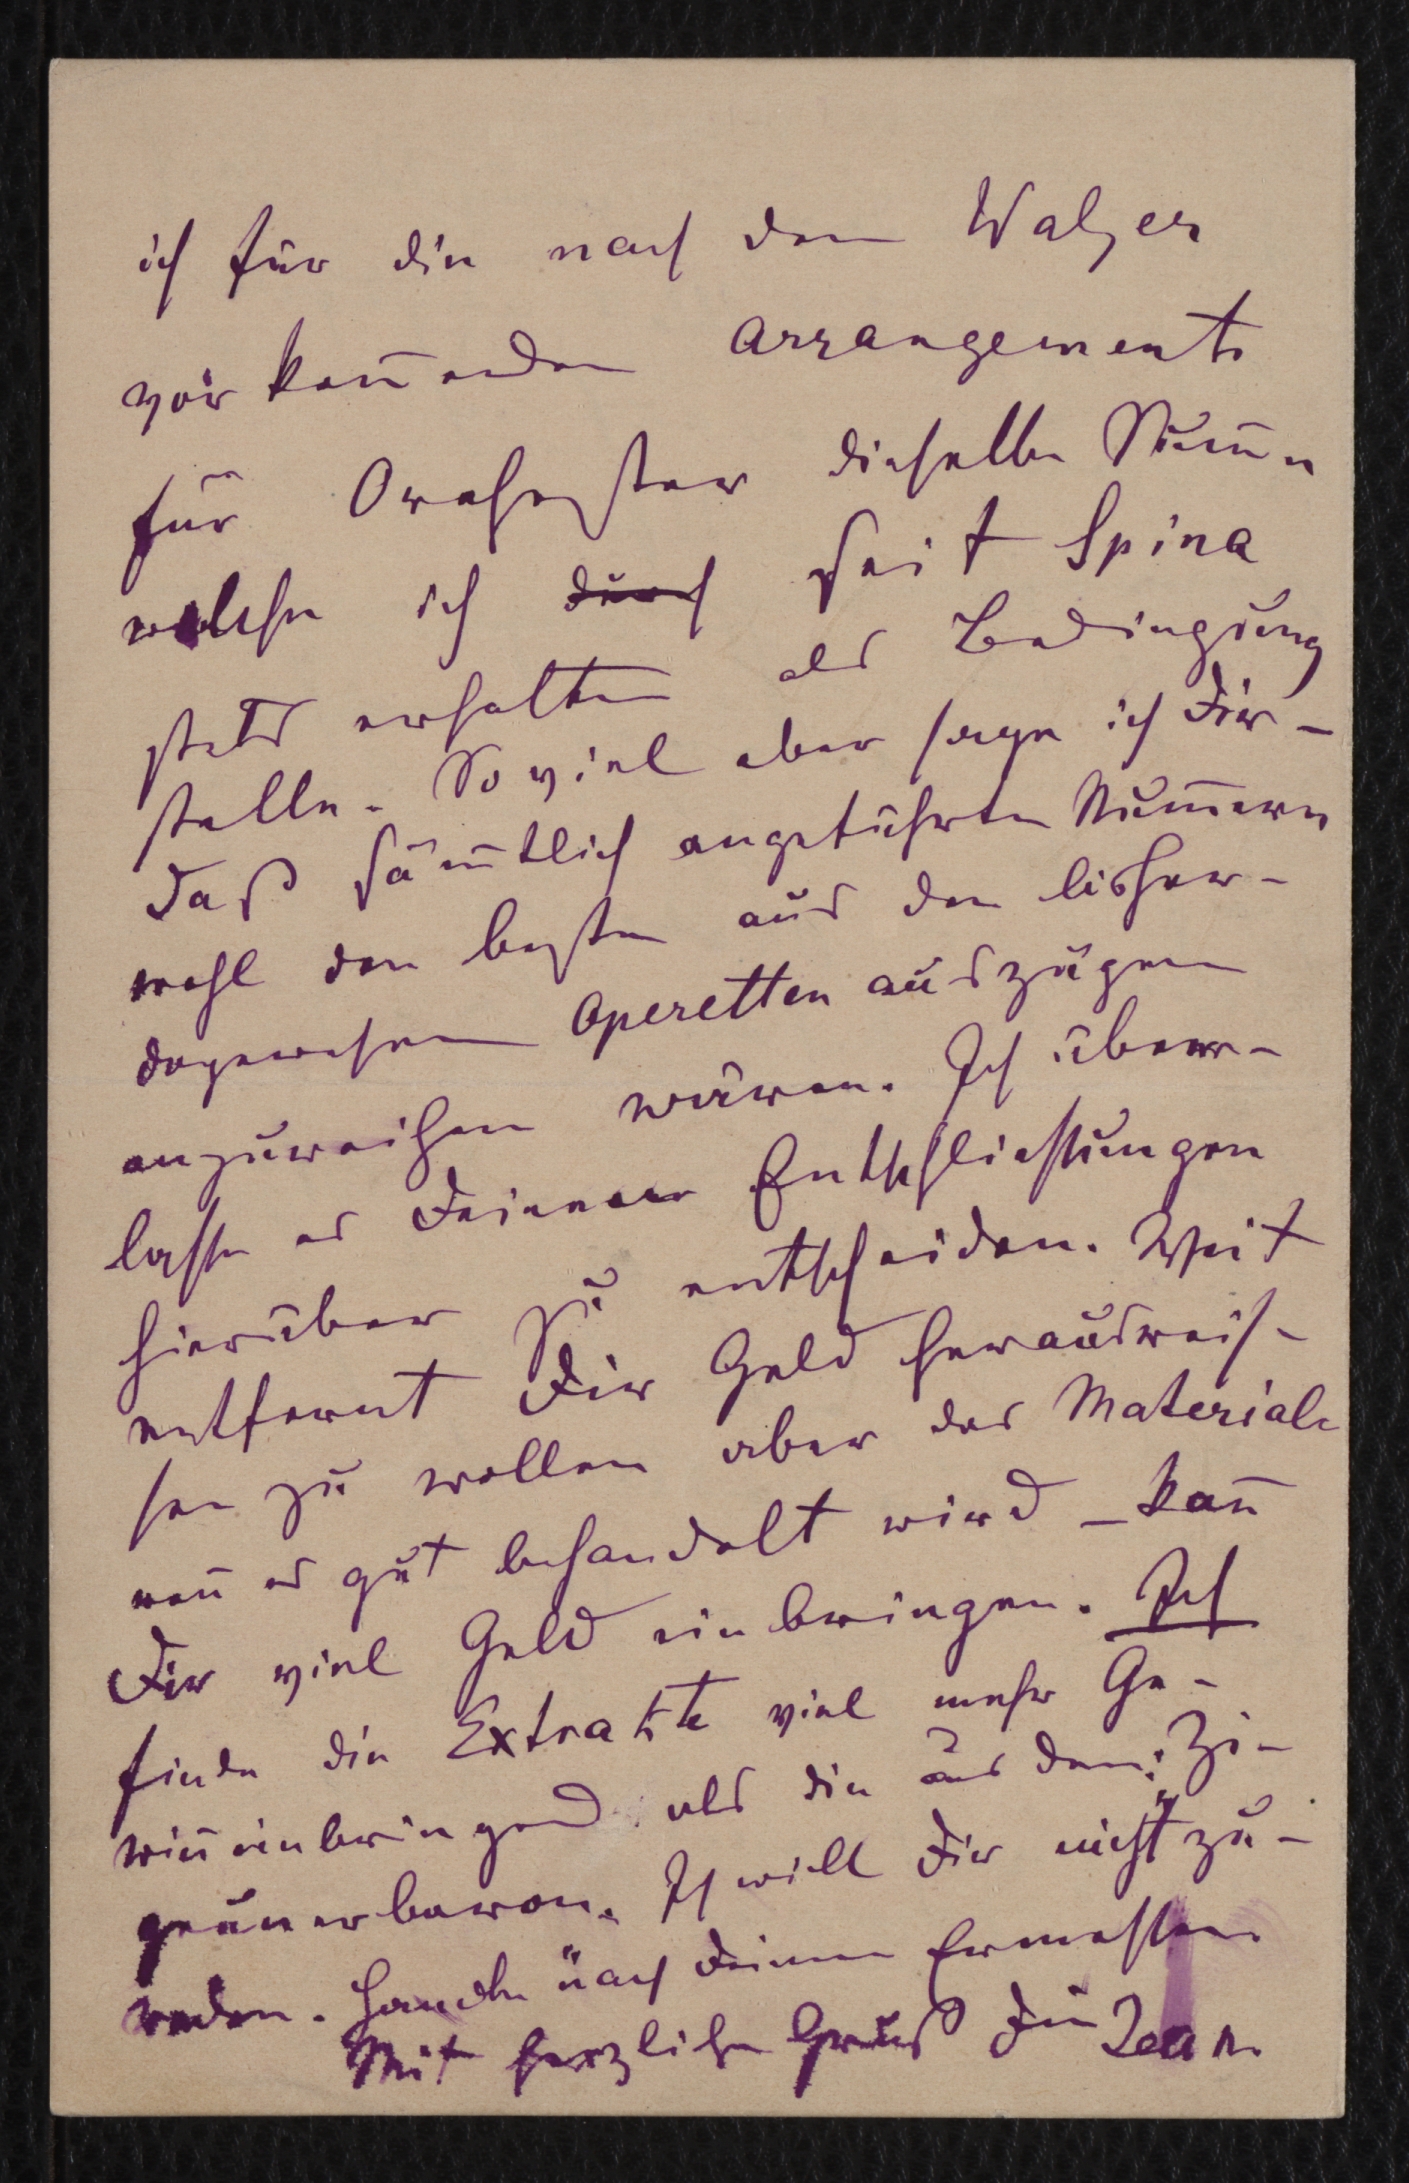 ich für die nach dem Walzer
vorkom̄enden Arrangements
für Orchester dieselbe Sum̄e
welche ich durch seit Spina
stets erhalten als Bedingung
stelle. So viel aber sage ich Dir –
daß säm̄tlich angeführte Num̄ern
wohl den besten aus den bisher-
dagewesenen Operetten auszügen
anzureihen wären. Ich über-
lasse es Deinen Entschließungen
hierüber zu entscheiden. Weit
entfernt Dir Geld herausreis-
sen zu wollen aber das Materiale
wen̄ es gut behandelt wird – kan̄
Dir viel Geld einbringen. Ich
finde die Extrakte viel mehr Ge-
win̄einbringend als die aus dem: Zi-
geunerbaron. Ich will Dir nicht zu-
reden. Handle nach Deinem Ermessen.
Mit herzlichen Gruß Dein Jean.